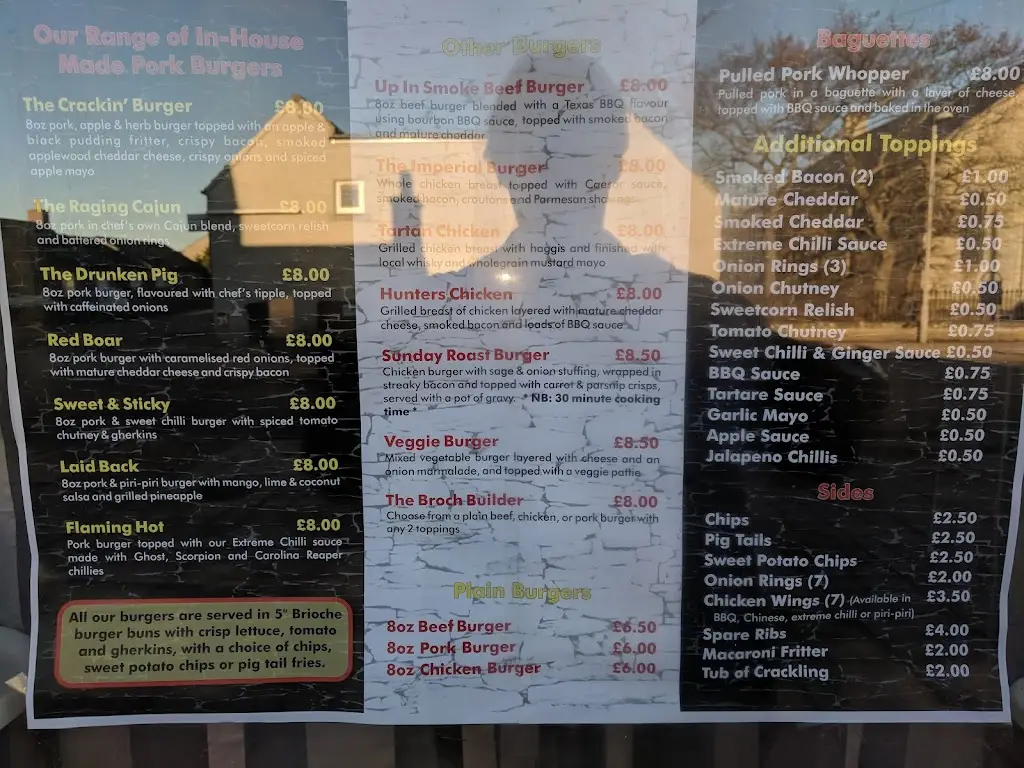 Our Range of In-House
Made Pork Burgers
The Crackin' Burger £8.00
8oz pork, apple & herb burger topped with an apple &
black pudding fritter, crispy bacon, smoked
applewood cheddar cheese, crispy onions and spiced
apple mayo
The Raging Cajun £8.00
8oz pork in chef's own Cajun blend, sweetcorn relish
and battered onion rings
The Drunken Pig £8.00
8oz pork burger, flavoured with chef's tipple, topped
with caffeinated onions
Red Boar £8.00
8oz pork burger with caramelised red onions, topped
with mature cheddar cheese and crispy bacon
Sweet & Sticky £8.00
8oz pork & sweet chilli burger with spiced tomato
chutney & gherkins
Laid Back £8.00
8oz pork & piri-piri burger with mango, lime & coconut
salsa and grilled pineapple
Flaming Hot £8.00
Pork burger topped with our Extreme Chilli sauce
made with Ghost, Scorpion and Carolina Reaper
chillies
All our burgers are served in 5" Brioche
burger buns with crisp lettuce, tomato
and gherkins, with a choice of chips,
sweet potato chips or pig tail fries.
Other Burgers
Up In Smoke Beef Burger £8.00
8oz beef burger blended with a Texas BBQ flavour
using bourbon BBQ sauce, topped with smoked bacon
and mature cheddar
The Imperial Burger £8.00
Whole chicken breast topped with Caesar sauce,
smoked bacon, croutons and Parmesan shavings
Tartan Chicken £8.00
Grilled chicken breast with haggis and finished with
local whisky and wholegrain mustard mayo
Hunters Chicken £8.00
Grilled breast of chicken layered with mature cheddar
cheese, smoked bacon and loads of BBQ sauce
Sunday Roast Burger £8.50
Chicken burger with sage & onion stuffing, wrapped in
streaky bacon and topped with carrot & parsnip crisps,
served with a pot of gravy. * NB: 30 minute cooking
time *
Veggie Burger £8.50
Mixed vegetable burger layered with cheese and an
onion marmalade, and topped with a veggie pattie
The Broch Builder £8.00
Choose from a plain beef, chicken, or pork burger with
any 2 toppings
Plain Burgers
8oz Beef Burger £6.50
8oz Pork Burger £6.00
8oz Chicken Burger £6.00
Baguettes
Pulled Pork Whopper £8.00
Pulled pork in a baguette with a layer of cheese,
topped with BBQ sauce and baked in the oven
Additional Toppings
Smoked Bacon (2) £1.00
Mature Cheddar £0.50
Smoked Cheddar £0.75
Extreme Chilli Sauce £0.50
Onion Rings (3) £1.00
Onion Chutney £0.50
Sweetcorn Relish £0.50
Tomato Chutney £0.75
Sweet Chilli & Ginger Sauce £0.50
BBQ Sauce £0.75
Tartare Sauce £0.75
Garlic Mayo £0.50
Apple Sauce £0.50
Jalapeno Chillis £0.50
Sides
Chips £2.50
Pig Tails £2.50
Sweet Potato Chips £2.50
Onion Rings (7) £2.00
Chicken Wings (7) (Available in £3.50
BBQ, Chinese, extreme chilli or piri-piri)
Spare Ribs £4.00
Macaroni Fritter £2.00
Tub of Crackling £2.00